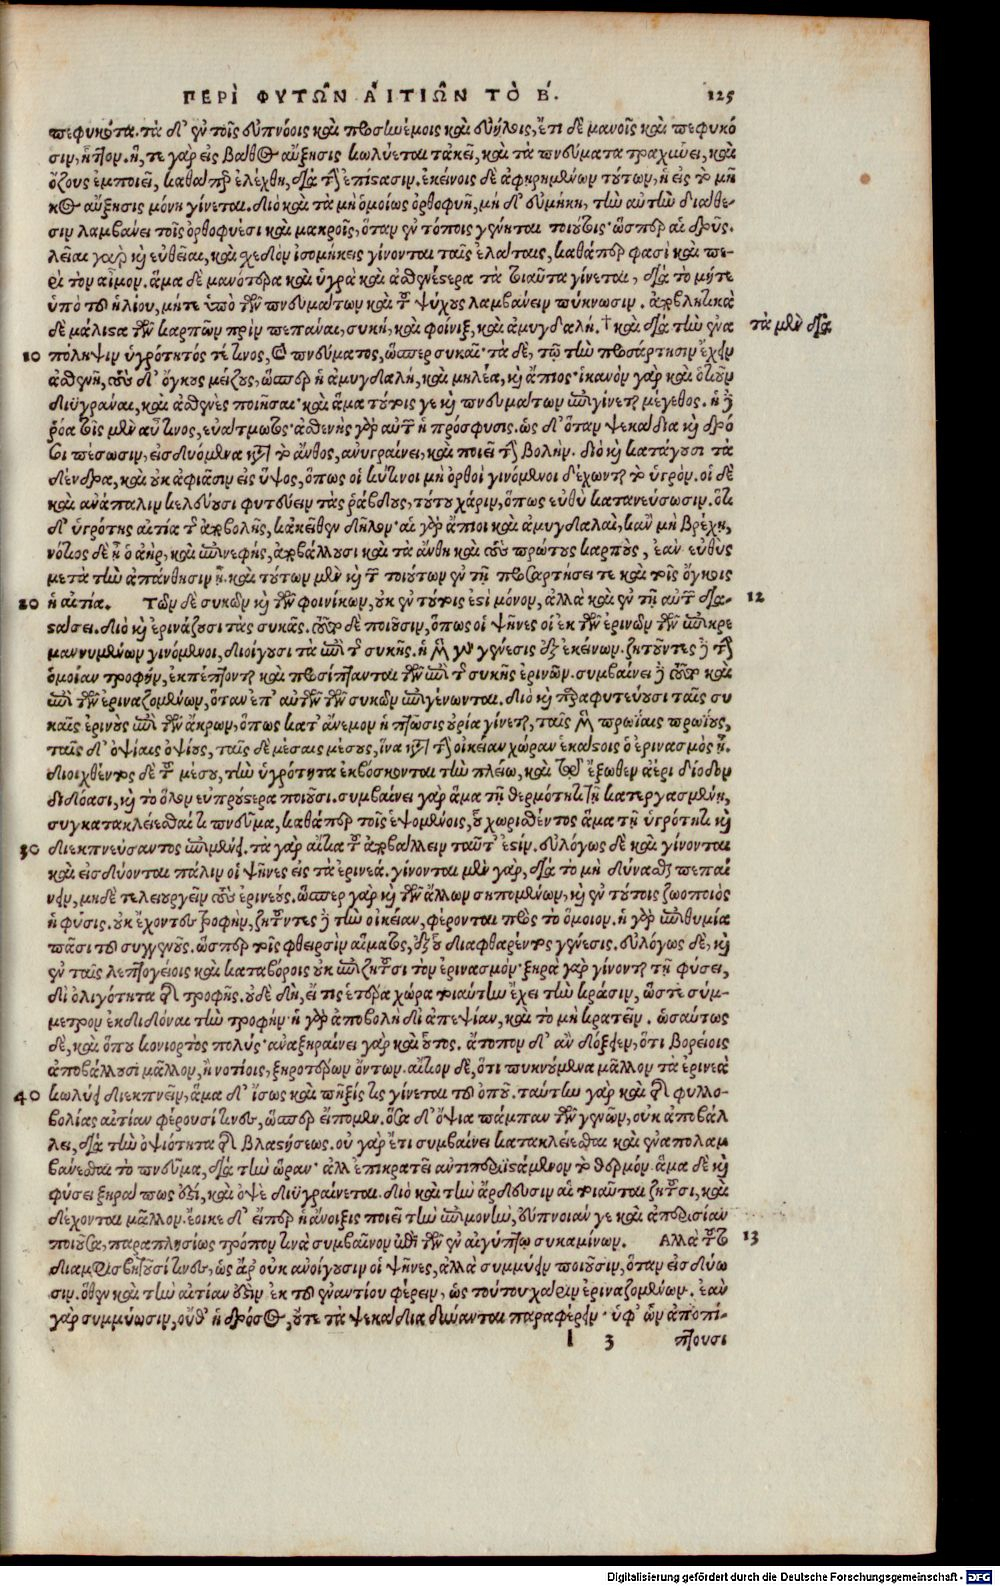 ΠΕΡῚ ΦΥΤΩ͂Ν ΑἸΤΙΩ͂Ν ΤῸ Β. 125
πεφυκότα. τὰ δ' ἐν τοῖς συπνόοις καὶ προσκυέμοις καὶ εὐήλοις, ἔτι δὲ μανοῖς καὶ πεφυκό
σιν, ἧττον. ἥ, τε γὰρ εἰς βάθος αὔξησις κωλύεται τἀκεῖ, καὶ τὰ πνεύματα τραχύνει, καὶ
ὄζους ἐμποιεῖ, καθάπερ ἐλέχθη, διὰ τὴν ἐπίστασιν. ἐκείνοις δὲ ἀφῃρημένων τούτων, ἡ εἰς τὸ μῆ
κος αὔξησις μόνη γίνεται. διὸ καὶ τὰ μὴ ὁμοίως ὀρθοφυῆ, μὴ δ' εὐμήκη, τὴν αὐτὴν διάθε-
σιν λαμβάνει τοῖς ὀρθοφυέσι καὶ μακροῖς, ὅταν ἐν τόποις γένηται τοιούτοις· ὥσπερ αἱ δρῦς.
λεῖαι γὰρ καὶ εὐθεῖαι, καὶ σχεδὸν ἰσομήκεις γίνονται ταῖς ἐλάταις, καθάπερ φασὶ καὶ πε-
ρὶ τὸν αἷμον. ἅμα δὲ μανότερα καὶ ὑγρὰ καὶ ἀσθενέστερα τὰ τοιαῦτα γίνεται, διὰ τὸ μήτε
ὑπὸ τοῦ ἡλίου, μήτε ὑπὸ τῶν πνευμάτων καὶ τοῦ ψύχους λαμβάνειν πύκνωσιν. ἀποβλητικὰ
δὲ μάλιστα τῶν καρπῶν πρὶν πεπᾶναι, συκῆ, καὶ φοῖνιξ, καὶ ἀμυγδαλῆ. † καὶ διὰ τὴν ἐνα τὰ μὲν διὰ
10 πόληψιν ὑγρότητός τέ τινος, καὶ πνεύματος, ὥσπερ συκαῖ· τὰ δὲ, τῷ τὴν προσάρτησιν ἔχειν
ἀσθενῆ, τοὺς δ' ὄγκους μείζους, ὥσπερ ἡ ἀμυγδαλῆ, καὶ μηλέα, καὶ ἄπιος· ἱκανὸν γὰρ καὶ ὁτιοῦν
διϋγρᾶναι, καὶ ἀσθενὲς ποιῆσαι· καὶ ἅμα τούτοις γε καὶ πνευμάτων ἐπιγίνεται μέγεθος. ἡ δὲ
ῥόα τοῖς μὲν αὖ τινος, εὐαίτμωτος· ἀσθενὴς γὰρ αὐτῆς ἡ πρόσφυσις. ὡς δ' ὅταν ψεκάδια καὶ δρό
σοι πέσωσιν, εἰσδυόμενα κατὰ τὸ ἄνθος, ἀνυγραίνει, καὶ ποιεῖ τὴν βολήν. διὸ καὶ κατάγουσι τὰ
δένδρα, καὶ οὐκ ἀφιᾶσιν εἰς ὕψος, ὅπως οἱ κύτινοι μὴ ὀρθοὶ γινόμενοι δέχωνται τὸ ὑγρόν. οἱ δὲ
καὶ ἀνάπαλιν κελεύουσι φυτεύειν τὰς ῥάβδους, τούτου χάριν, ὅπως εὐθὺ κατανεύσωσιν. ὅτι
δ' ὑγρότης αἰτία τῆς ἀποβολῆς, κἀκεῖθεν δῆλον· αἱ γὰρ ἄπιοι καὶ ἀμυγδαλαῖ, κἂν μὴ βρέχῃ,
νότιος δὲ ᾖ ὁ ἀὴρ, καὶ ἐπινεφὴς, ἀποβάλλουσι καὶ τὰ ἄνθη καὶ τοὺς πρώτους καρποὺς, ἐὰν εὐθὺς
μετὰ τὴν ἀπάνθησιν ᾖ. καὶ τούτων μὲν καὶ τῶν τοιούτων ἐν τῇ προσαρτήσει τε καὶ τοῖς ὄγκοις
20 ἡ αἰτία. Τῶν δὲ συκῶν καὶ τῶν φοινίκων, οὐκ ἐν τούτοις ἐστὶ μόνον, ἀλλὰ καὶ ἐν τῇ αὐτῶν δια- 12
στάσει. διὸ καὶ ἐρινάζουσι τὰς συκᾶς. τοῦτο δὲ ποιοῦσιν, ὅπως οἱ ψῆνες οἱ ἐκ τῶν ἐρινῶν τῶν ἐπικρε
μαννυμένων γινόμενοι, διοίγουσι τὰ ἐπὶ τῆς συκῆς. ἡ μὲν οὖν γένεσις ἐξ ἐκείνων. ζητοῦντες δὲ τὴν
ὁμοίαν τροφὴν, ἐκπέτονται καὶ προσίπτανται τῶν ἐπὶ τῆς συκῆς ἐρινῶν. συμβαίνει δὲ τοῦτο καὶ
ἐπὶ τῶν ἐριναζομένων, ὅταν ἐπ' αὐτῶν τῶν συκῶν ἐπιγένωνται. διὸ καὶ παραφυτεύουσι ταῖς συ
καῖς ἐρινοὺς ἐπὶ τῶν ἄκρων, ὅπως κατ' ἄνεμον ἡ πτῶσις οὐρία γίνεται, ταῖς μὲν πρωΐαις πρωΐους,
ταῖς δ' ὀψίαις ὀψίους, ταῖς δὲ μέσαις μέσους, ἵνα κατὰ τὴν οἰκείαν χώραν ἑκάστοις ὁ ἐρινασμὸς ᾖ.
διοιχθέντος δὲ τοῦ μέσου, τὴν ὑγρότητα ἐκβόσκονται τὴν πλείω, καὶ τῷ ἔξωθεν ἀέρι δίοδον
διδόασι, καὶ τὸ ὅλον εὐπρούστερα ποιοῦσι. συμβαίνει γὰρ ἅμα τῇ θερμότητι τῇ κατεργασμένῃ,
συγκατακλείεσθαί τι πνεῦμα, καθάπερ τοῖς ἑψομένοις, οὗ χωρισθέντος ἅμα τῇ ὑγρότητι καὶ
30 διεκπνεύσαντος ἐπιμένει. τὰ γὰρ αἴτια τοῦ ἀποβάλλειν ταῦτ' ἐστίν. εὐλόγως δὲ καὶ γίνονται
καὶ εἰσδύονται πάλιν οἱ ψῆνες εἰς τὰ ἐρινεά. γίνονται μὲν γὰρ, διὰ τὸ μὴ δύνασθαι πεπαί
νειν, μηδὲ τελειουργεῖν τοὺς ἐρινεούς. ὥσπερ γὰρ καὶ τῶν ἄλλων σηπομένων, καὶ ἐν τούτοις ζωοποιὸς
ἡ φύσις. οὐκ ἔχοντες τροφὴν, ζητοῦντες δὲ τὴν οἰκείαν, φέρονται πρὸς τὸ ὅμοιον. ἡ γὰρ ἐπιθυμία
πᾶσι τοῦ συγγενοῦς. ὥσπερ τοῖς φθειρσὶν αἵματος, ἐξ οὗ διαφθαρέντος γένεσις. εὐλόγως δὲ, καὶ
ἐν ταῖς λεπτογείοις καὶ καταβόροις οὐκ ἐπιζητοῦσι τὸν ἐρινασμόν· ξηρὰ γὰρ γίνονται τῇ φύσει,
δι' ὀλιγότητα τῆς τροφῆς. οὐδὲ δὴ, εἴ τις ἑτέρα χώρα τοιαύτην ἔχει τὴν κρᾶσιν, ὥστε σύμ-
μετρον ἐκδιδόναι τὴν τροφήν· ἡ γὰρ ἀποβολὴ δι' ἀπεψίαν, καὶ τὸ μὴ κρατεῖν. ὡσαύτως
δὲ, καὶ ὅπου κονιορτὸς πολύς· ἀναξηραίνει γὰρ καὶ οὗτος. ἄτοπον δ' ἂν δόξειεν, ὅτι βορείοις
ἀποβάλλουσι μᾶλλον, ἢ νοτίοις, ξηροτέρων ὄντων. αἴτιον δὲ, ὅτι πυκνούμενα μᾶλλον τὰ ἐρινεὰ
40 κωλύει διεκπνεῖν, ἅμα δ' ἴσως καὶ πῆξίς τις γίνεται τοῦ ὀποῦ. ταύτην γὰρ καὶ τῆς φυλλο-
βολίας αἰτίαν φέρουσί τινες, ὥσπερ εἴπομεν. ὅσα δ' ὄψια πάμπαν τῶν γενῶν, οὐκ ἀποβάλ
λει, διὰ τὴν ὀψιότητα τῆς βλαστήσεως. οὐ γὰρ ἔτι συμβαίνει κατακλείεσθαι καὶ ἐναπολαμ
βάνεσθαι τὸ πνεῦμα, διὰ τὴν ὥραν· ἀλλ' ἐπικρατεῖ ἀντιπεριϊστάμενον τὸ θερμόν. ἅμα δὲ καὶ
φύσει ξηρά πως ἐστὶ, καὶ ὀψὲ διϋγραίνεται. διὸ καὶ τὴν ἄρδευσιν αἱ τοιαῦται ζητοῦσι, καὶ
δέχονται μᾶλλον. ἔοικε δ' εἴπερ ἡ ἄνοιξις ποιεῖ τὴν ἐπιμονὴν, εὔπνοιάν γε καὶ ἀπέρασίαν
ποιοῦσα, παραπλησίως τρόπον τινὰ συμβαῖνον ἐπὶ τῶν ἐν αἰγύπτῳ συκαμίνων. Ἀλλὰ τοῦτο 13
διαμφισβητοῦσί τινες, ὡς ἄρ' οὐκ ἀνοίγουσιν οἱ ψῆνες, ἀλλὰ συμμύειν ποιοῦσιν, ὅταν εἰσδύω
σιν. ὅθεν καὶ τὴν αἰτίαν οὖσιν ἐκ τοῦ ἐναντίου φέρειν, ὡς τούτου χάριν ἐριναζομένων. ἐὰν
γὰρ συμμύωσιν, οὔθ' ἡ δρόσος, οὔτε τὰ ψεκάδια δύνανται παραφέρειν· ὑφ' ὧν ἀποπί-
l 3 πτουσι
Digitalisierung gefördert durch die Deutsche Forschungsgemeinschaft - DFG